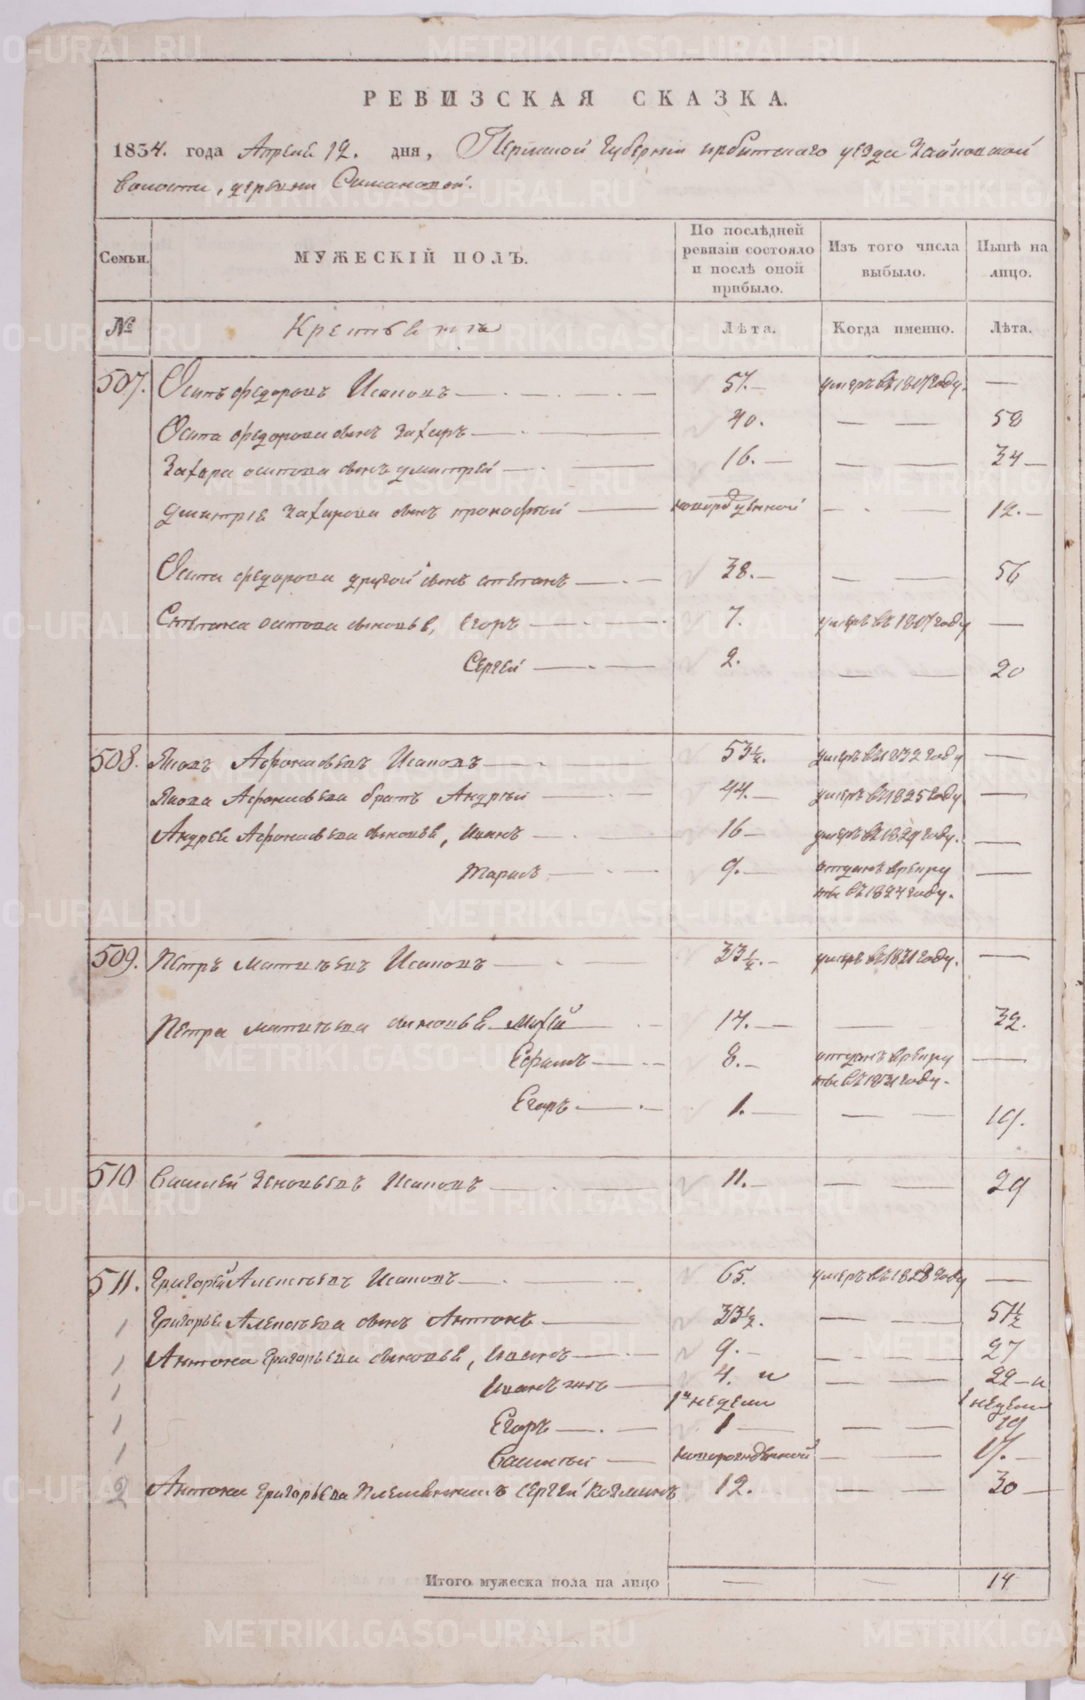 РЕВИЗСКАЯ СКАЗКА.
1834. года Апреля 12. дня, Пермской Губернии ирбитскаго уезда Зайковской
Волости, деревни
Семьи. МУЖЕСКІЙ ПОЛЪ. По послѣдней ревизіи состояло и послѣ оной прибыло. Изъ того числа выбыло. Нынѣ на лицо.
№ Крестьяне Лѣта. Когда именно. Лѣта.
507. Осипъ федоровъ Исаковъ 57. умеръ въ 1817 году. —
Осипа федорова сынъ Захаръ 40. — — 58
Захара осипова сынъ дмитрей 16. — — 34
дмитрія Захарова сынъ прокофей новорожденной — — 12.
Осипа федорова другой сынъ степанъ 38. — — 56
Степана осипова сыновья, Егоръ 7. умеръ въ 1817 году —
Сергей 2. — — 20
508. Яковъ Афонасьевъ Исаковъ 53½. умеръ въ 1832 году —
Якова Афонасьева братъ Андрей 44. умеръ въ 1825 году —
Андрея Афонасьева сыновья, Иванъ 16 умеръ въ 1829 году. —
Тарасъ 9. отданъ в рекру
ты въ 1824 году. —
509. Петръ Матвеевъ Исаковъ 33½. умеръ въ 1821 году. —
Петра матвеева сыновья Мохей 14. — 32.
Ефимъ 8. отданъ в рекру
ты въ 1831 году. —
Егоръ 1. — — 19.
510 Василей Зеновьевъ Исаковъ 11. — — 29
511. Григорей Алексеевъ Исаковъ 65. умеръ въ 1828 году —
Григорья Алексеева сынъ Антонъ 33½. — — 51½
1 Антона Григорьева сыновья, Иванъ 9. — — 27
1 Иванъ же 4. и — — 22 и
1 недели 1 недели
1 Егоръ 1 — — 19
1 Василей новорожденной — — 17.
2 Антона григорьева племянникъ Сергей 12. — — 30
Итого мужеска пола на лицо — — 14
METRIKI.GASO-URAL.RU